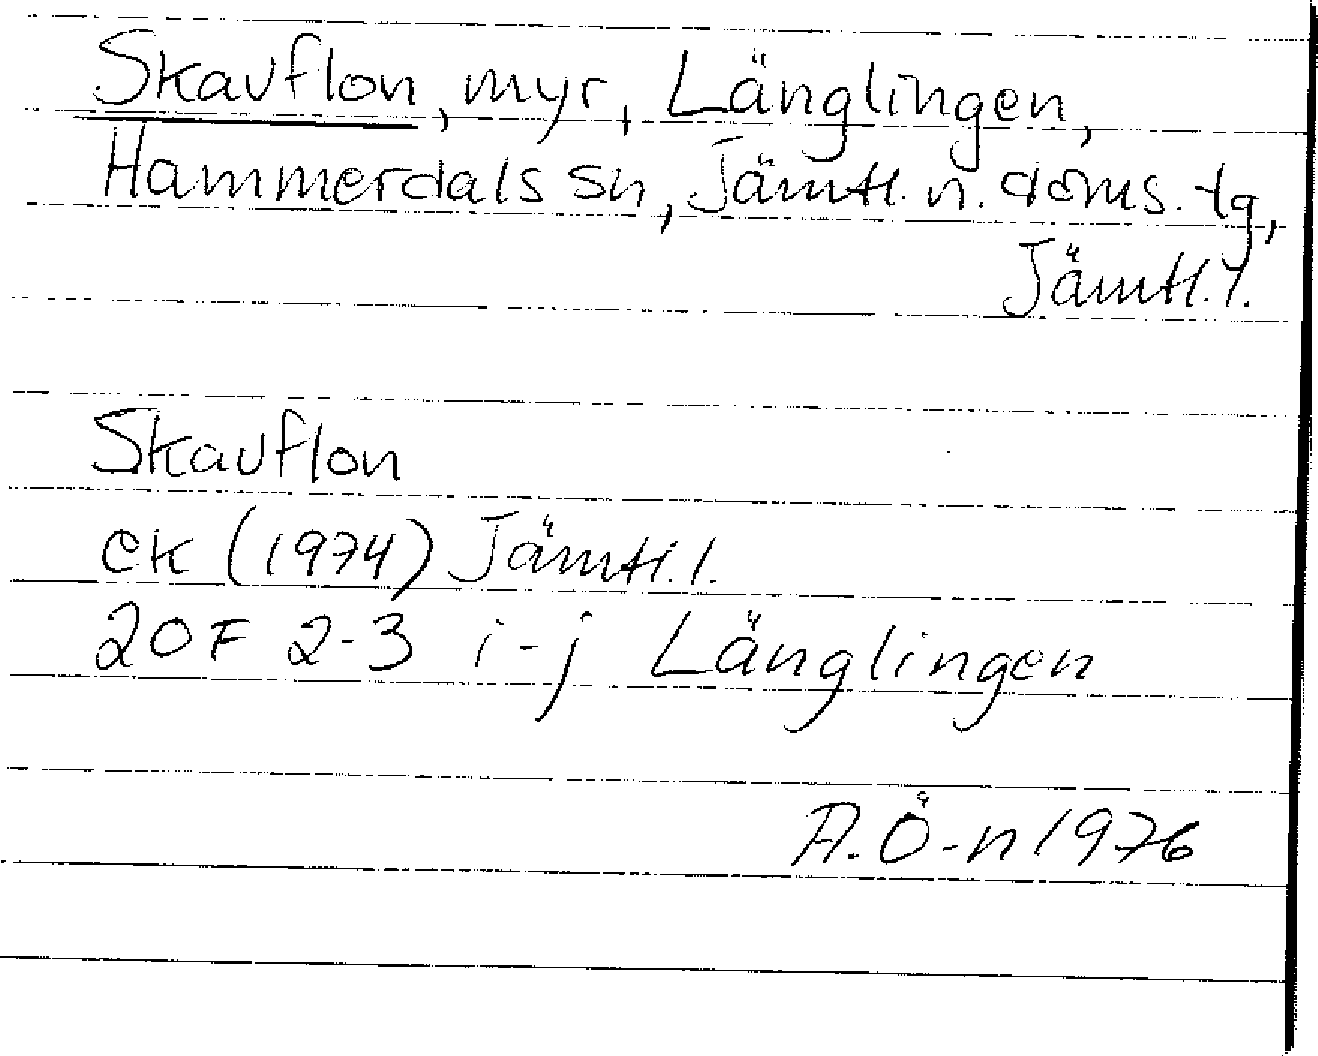 Skavflon, myr, Länglingen,
Hammerdals sn, Jämtl. n. doms. tg,
Jämtl. l.
Skavflon
ek (1974) Jämtl. l.
20F 2-3 i-j Länglingen
A. Ö-n 1976